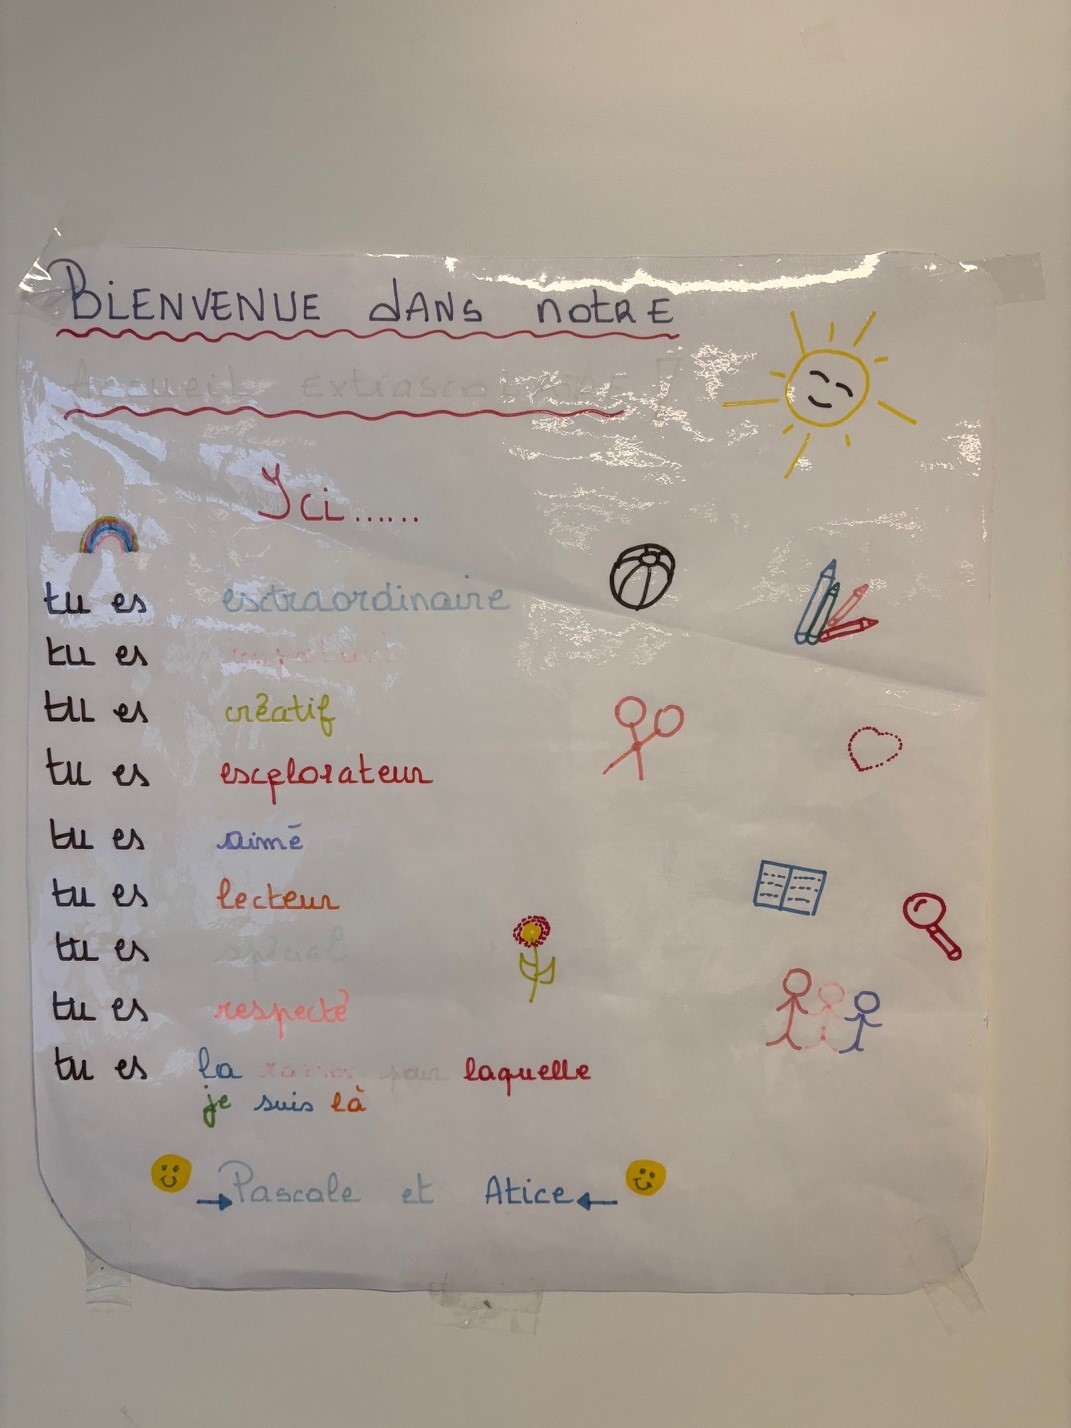 BiENVENUE dANS notRE
Accueil Extrascolaire
Ici......
tu es extraordinaire
tu es important
tu es créatif
tu es explorateur
tu es aimé
tu es lecteur
tu es spécial
tu es respecté
tu es la raison pour laquelle
je suis là
→Pascale et Alice←